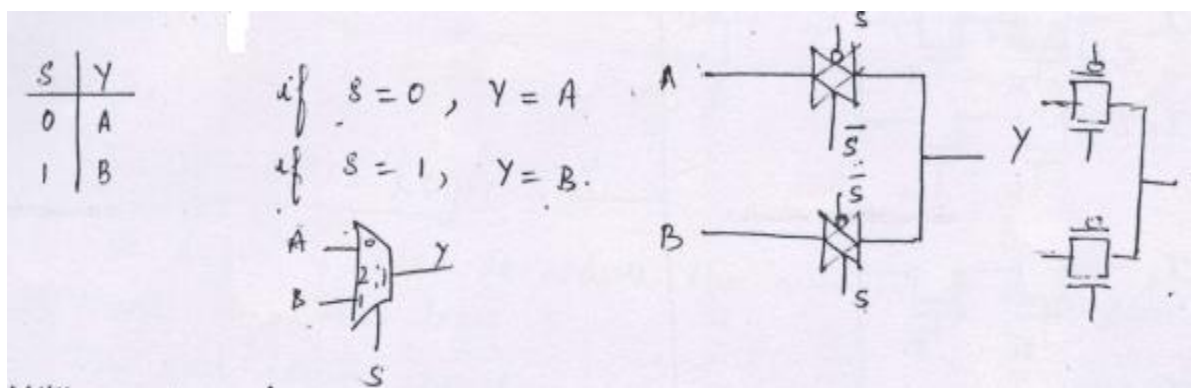 S Y
0 A
1 B
if S = 0, Y = A
if S = 1, Y = B.
A 0
2:1 Y
B 1
S
S
A
S̅
Y
S̅
B
S